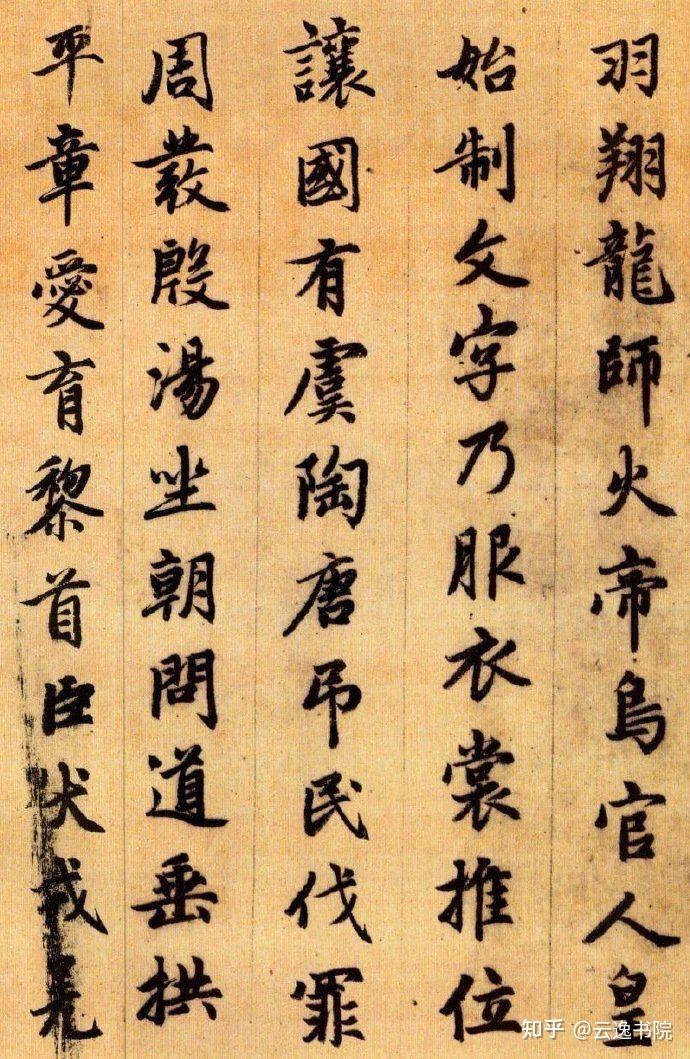 羽翔龍師火帝鳥官人皇
始制文字乃服衣裳推位
讓國有虞陶唐吊民伐罪
周發殷湯坐朝問道垂拱
平章愛育黎首臣伏戎羌
知乎 @云逸书院